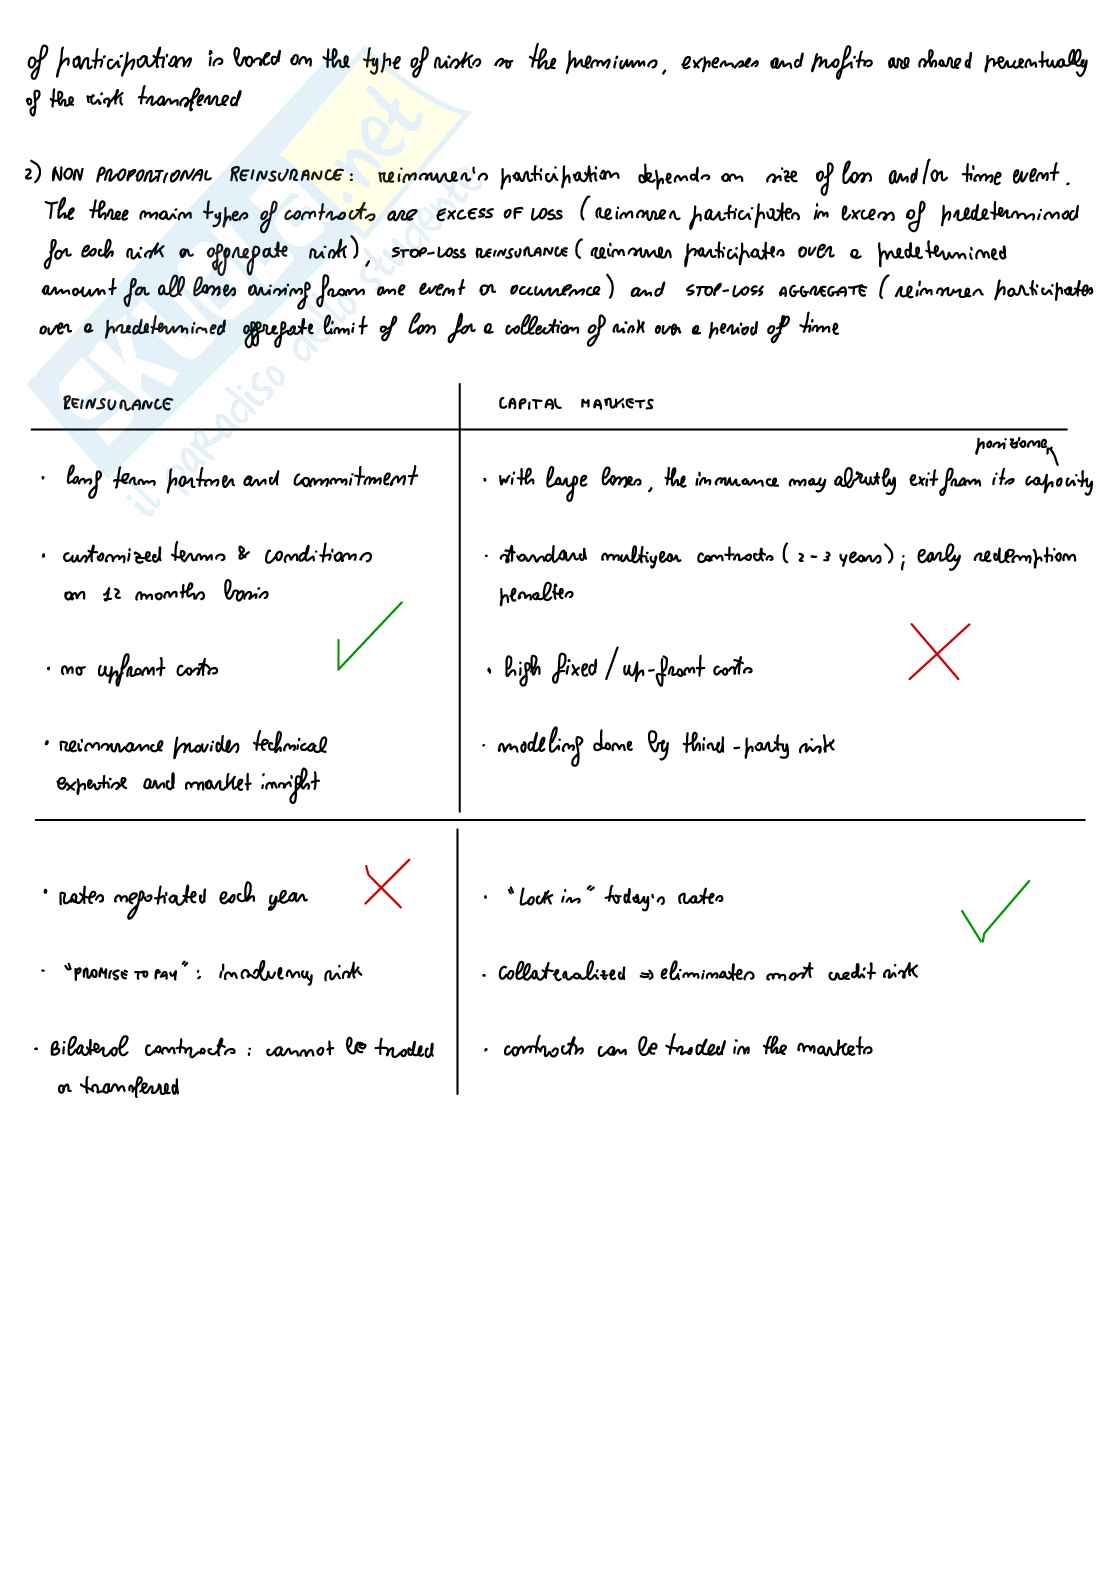 of participation is based on the type of risks so the premiums, expenses and profits are shared percentually
of the risk transferred
2) NON PROPORTIONAL REINSURANCE: reinsurer's participation depends on size of loss and/or time event.
The three main types of contracts are EXCESS OF LOSS (reinsurer participates in excess of predetermined
for each risk or aggregate risk), STOP-LOSS REINSURANCE (reinsurer participates over a predetermined
amount for all losses arising from one event or occurrence) and STOP-LOSS AGGREGATE (reinsurer participates
over a predetermined aggregate limit of loss for a collection of risk over a period of time
REINSURANCE
CAPITAL MARKETS
· long term partner and commitment
· customized terms & conditions
on 12 months basis
· no upfront costs
· reinsurance provides technical
expertise and market insight
posizione
· with large losses, the insurance may abrutly exit from its capacity
· standard multiyear contracts (2-3 years); early redemption
penalties
· high fixed / up-front costs
· modeling done by third-party risk
· rates negotiated each year
· "PROMISE TO PAY": insolvency risk
· Bilateral contracts: cannot be traded
or transferred
· "Lock in" today's rates
· collateralized ⇒ eliminates most credit risk
· contracts can be traded in the markets
SKUOLA.net
il paradiso dello studente